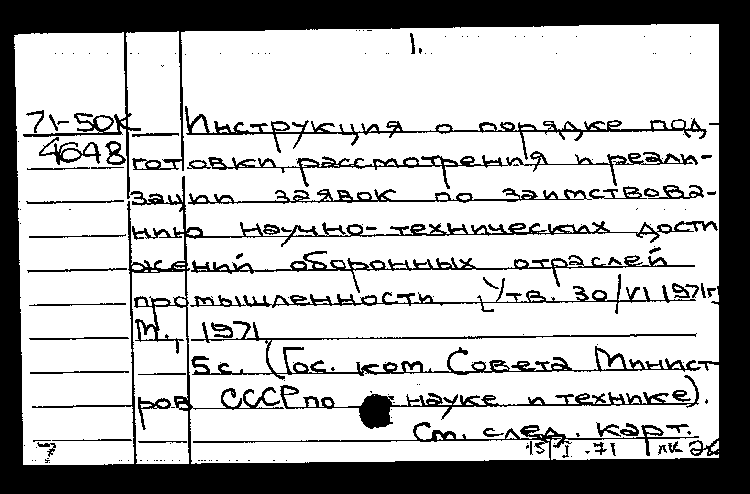 1.
71-50К Инструкция о порядке под-
4648 готовки, рассмотрения и реали-
зации заявок по заимствова-
нию научно-технических дости
жений оборонных отраслей
промышленности. [Утв. 30/VI 1971г]
М., 1971.
5с. (Гос. ком. Совета Минист-
ров СССР по науке и технике).
См. след. карт.
7 15/ I .71 лк